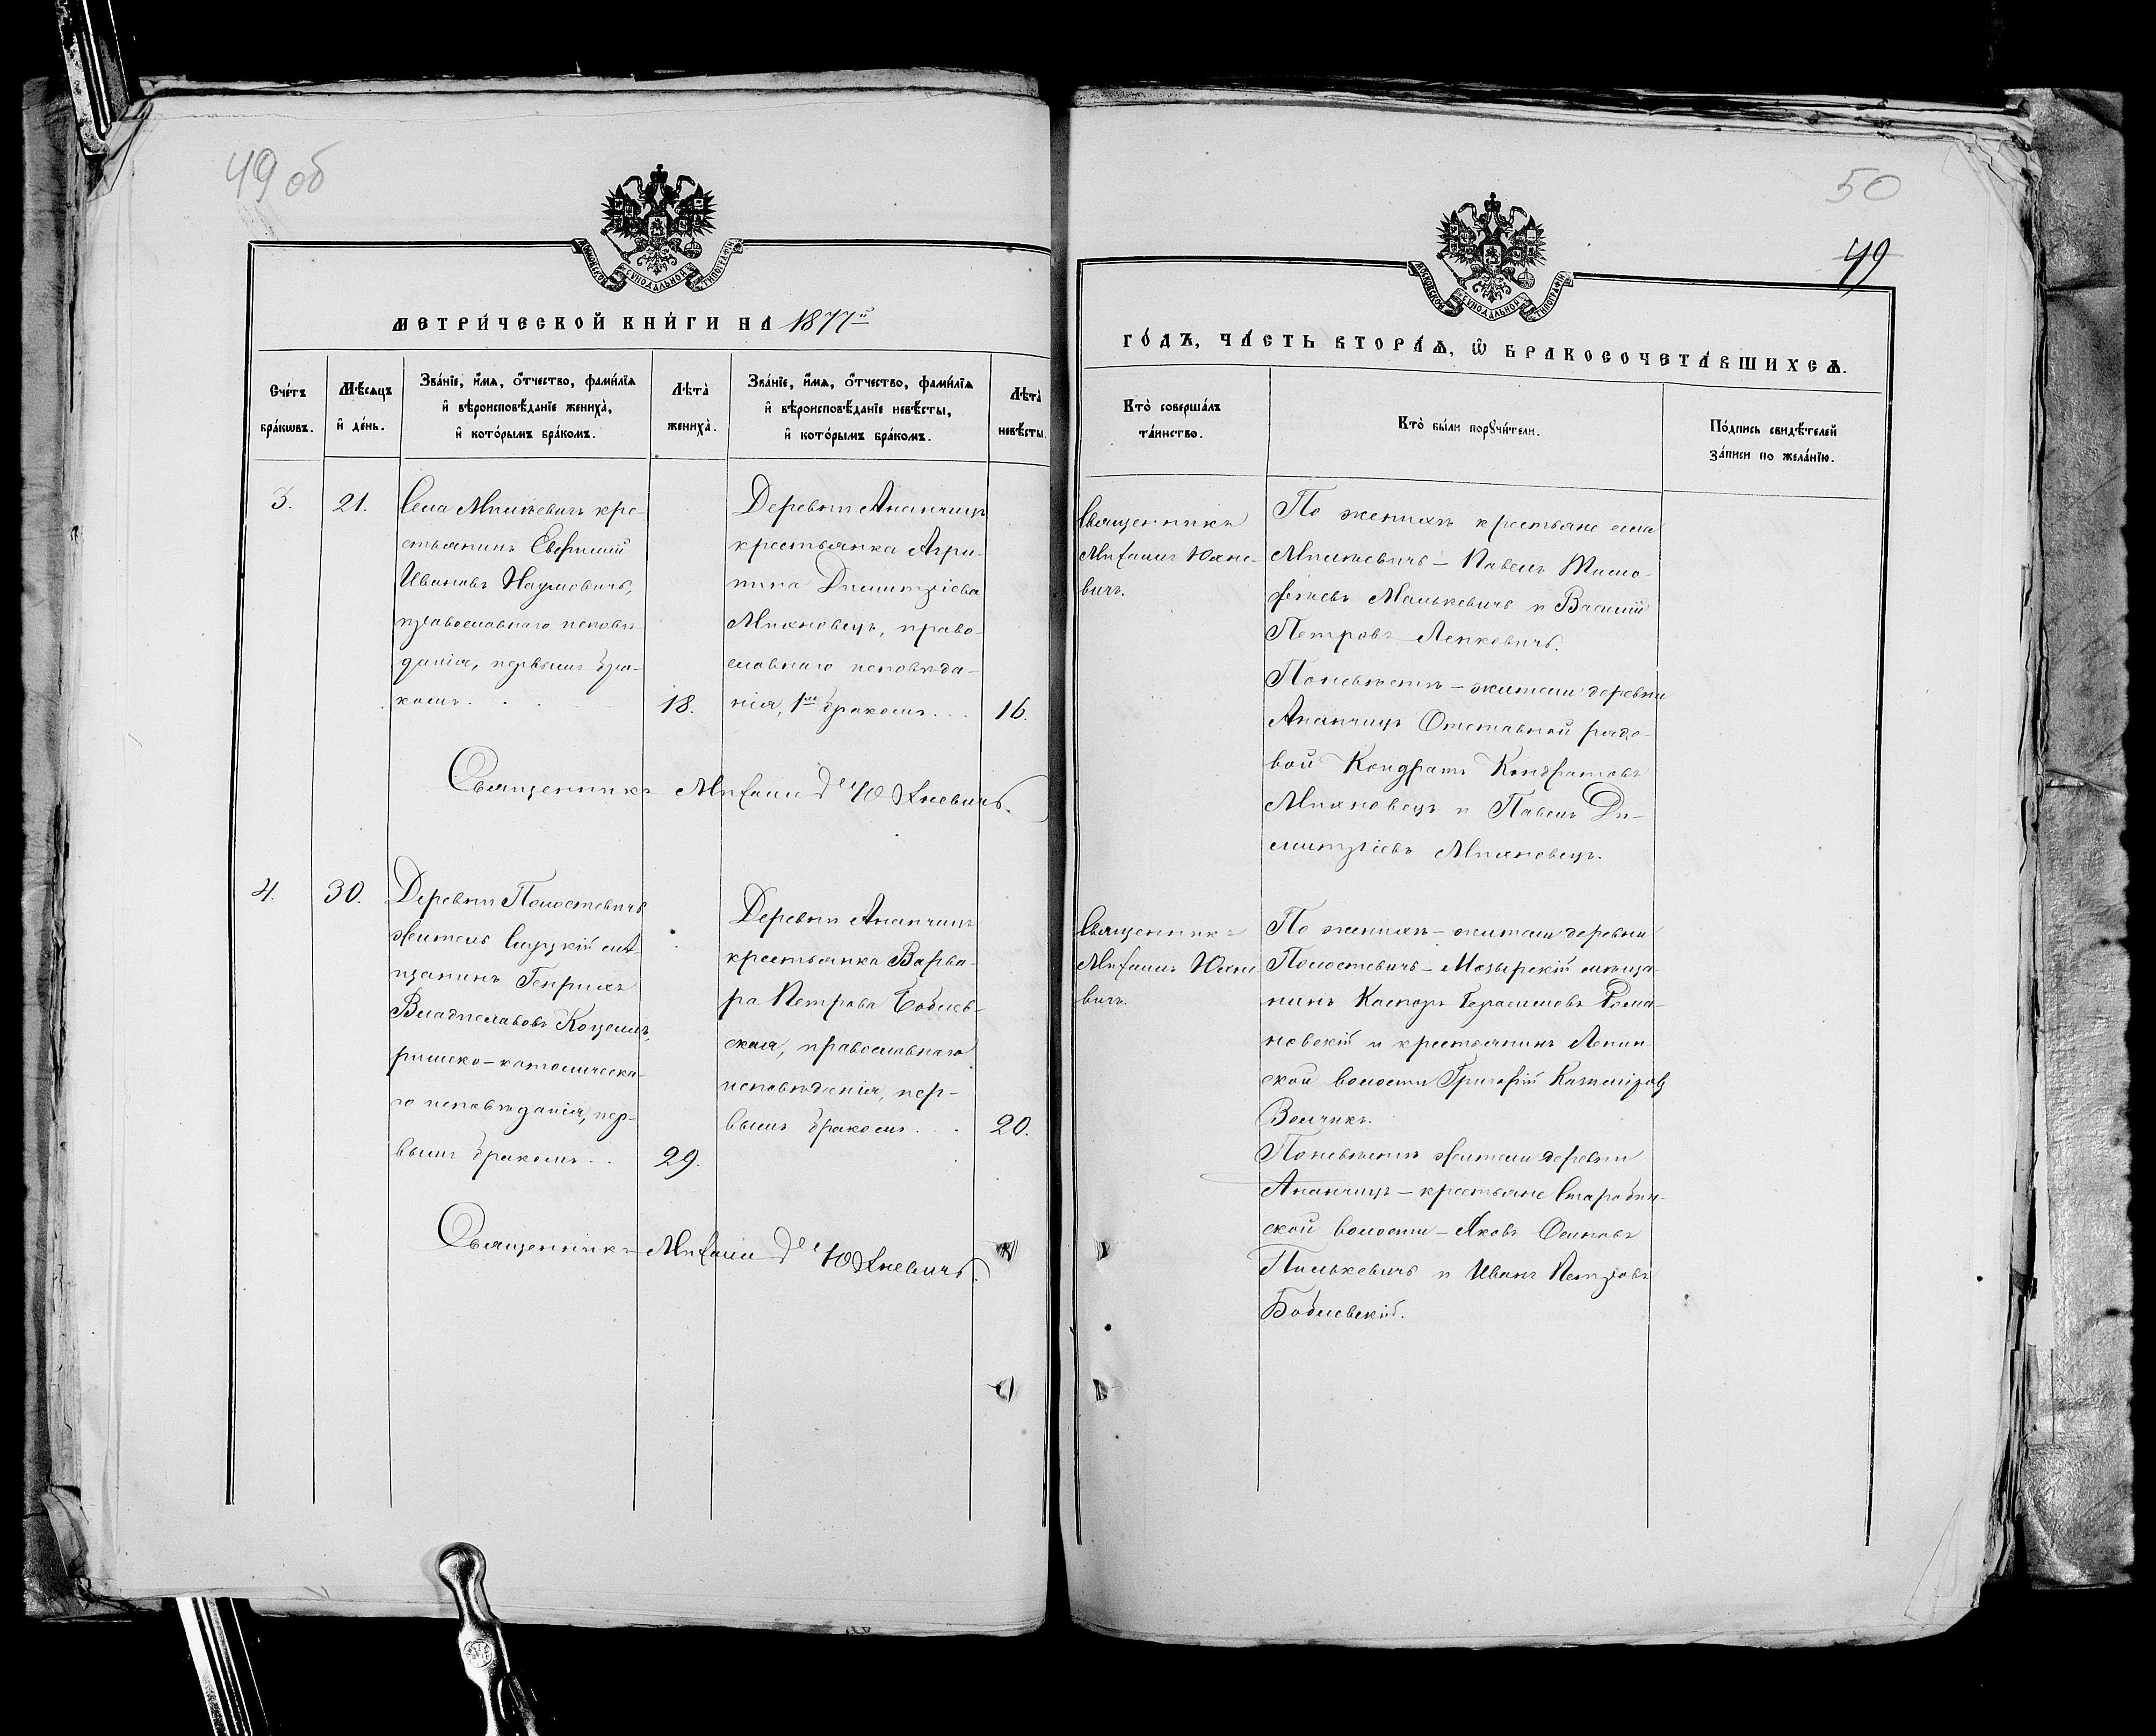 49 об
МОСКОВСКОЙ СѴНОДАЛЬНОЙ ТИПОГРАФІИ
МЕТРИ́ЧЕСКОЙ КНИ́ГИ НА 1877й
Сче́тъ бра́кѡвъ.
Мѣ́сяцъ и҆ де́нь.
Зва́нїе, и҆́мѧ, ѻ҆́тчество, фами́лїѧ
и҆ вѣроисповѣ́данїе жениха̀,
и҆ кото́рымъ бра́комъ.
Лѣта̀ жениха̀.
Зва́нїе, и҆́мѧ, ѻ҆́тчество, фами́лїѧ
и҆ вѣроисповѣ́данїе невѣ́сты,
и҆ кото́рымъ бра́комъ.
Лѣта̀ невѣ́сты.
3.
21.
Села Милкевичъ кре-
стьянинъ Евфимій
Ивановъ Наумовичъ,
православнаго исповѣ-
данія, первымъ бра-
комъ. . .
18.
Деревни Ананчицъ
крестьянка Агри-
пина Димитріева
Михновецъ, право-
славнаго исповѣда-
нія, 1мъ бракомъ. . .
16.
Священникъ Михаилъ Юхневичъ.
4.
30.
Деревни Поло­стевичъ
житель Слуцкій мѣ-
щанинъ Генрихъ
Владиславовъ Коцелъ,
римско-католическа-
го исповѣданія, пер-
вымъ бракомъ. .
29.
Деревни Ананчицъ
крестьянка Варва-
ра Петрова Боблев-
ская, православнаго
исповѣданія, пер-
вымъ бракомъ. . .
20.
Священникъ Михаилъ Юхневичъ.
50
49
МОСКОВСКОЙ СѴНОДАЛЬНОЙ ТИПОГРАФІИ
ГО́ДЪ, ЧА́СТЬ ВТОРА́Ѧ, Ѽ БРАКОСОЧЕТА́ВШИХСѦ.
Кто̀ соверша́лъ
та́инство.
Кто̀ бы́ли порꙋчи́тели.
По́дпись свидѣ́телей
за́писи по жела́нїю.
Священникъ
Михаилъ Юхне-
вичъ.
По женихѣ крестьяне села
Милкевичъ - Павелъ Тимо-
феевъ Малькевичъ и Василій
Петровъ Лепковичъ.
По невѣстѣ - жители деревни
Ананчицъ Отставной рядо-
вой Кондратъ Кондратовъ
Михновецъ и Павелъ Ди-
митріевъ Михновецъ.
Священник=
Михаилъ Юхне
вичъ.
По женихѣ - жители деревни
Полостевичъ - Мозырскій мѣща-
нинъ Каспоръ Герасимовъ Рома-
новскій и крестьянинъ Ленин-
ской волости Григорій Казиміровъ
Волчикъ.
По невѣстѣ жители деревни
Ананчицъ - крестьяне Старобин-
ской волости - Яковъ Осиповъ
Пилькевичъ и Иванъ Петровъ
Боблевскій.